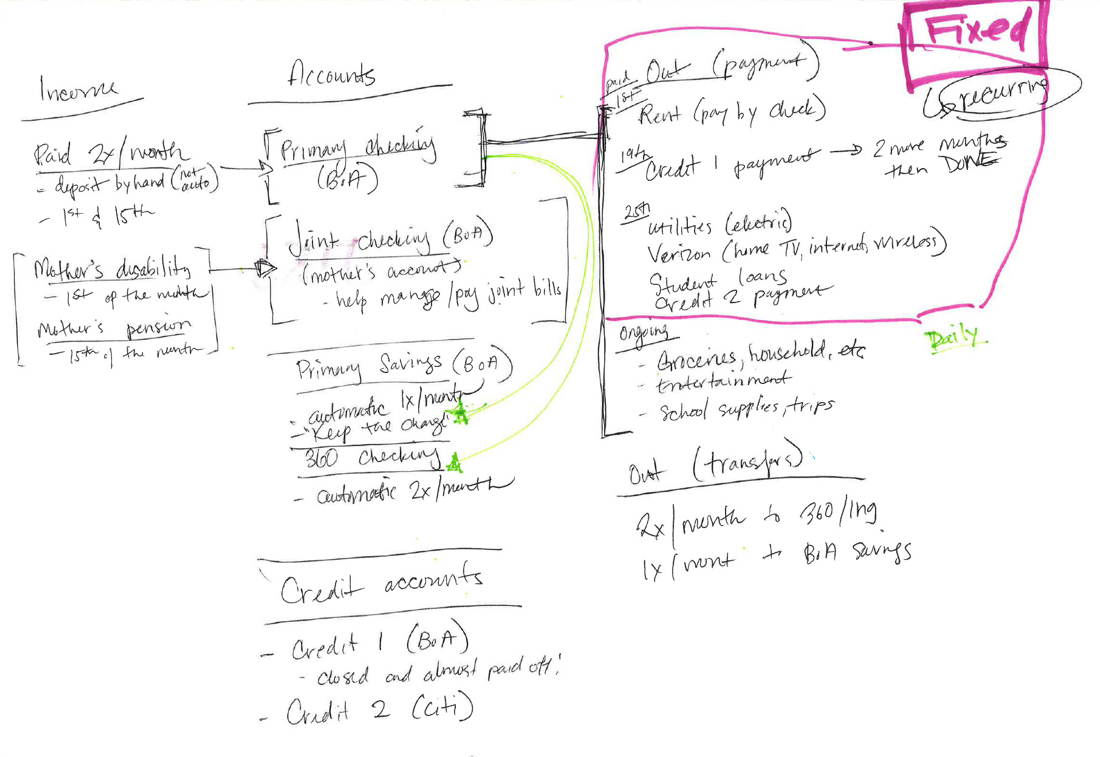 Income
Paid 2x/month
- deposit by hand (not auto)
- 1st & 15th
Mother's disability
- 1st of the month
Mother's pension
- 15th of the month
Accounts
Primary checking
(BoA)
Joint checking (BoA)
(mother's account)
- help manage/pay joint bills
Primary Savings (BoA)
- automatic 1x/month
- "Keep the Change"
360 checking
- automatic 2x/month
Credit accounts
- Credit 1 (BoA)
- closed and almost paid off!
- Credit 2 (Citi)
Fixed
↳ recurring
paid Out (payment)
1st
Rent (pay by check)
19th
Credit 1 payment → 2 more months
then DONE
25th
utilities (electric)
Verizon (home TV, internet, wireless)
Student loans
Credit 2 payment
Ongoing
- Groceries, household, etc
- Entertainment
- School supplies, trips
Daily
Out (transfers)
2x/month to 360/Ing
1x/mont to BoA savings